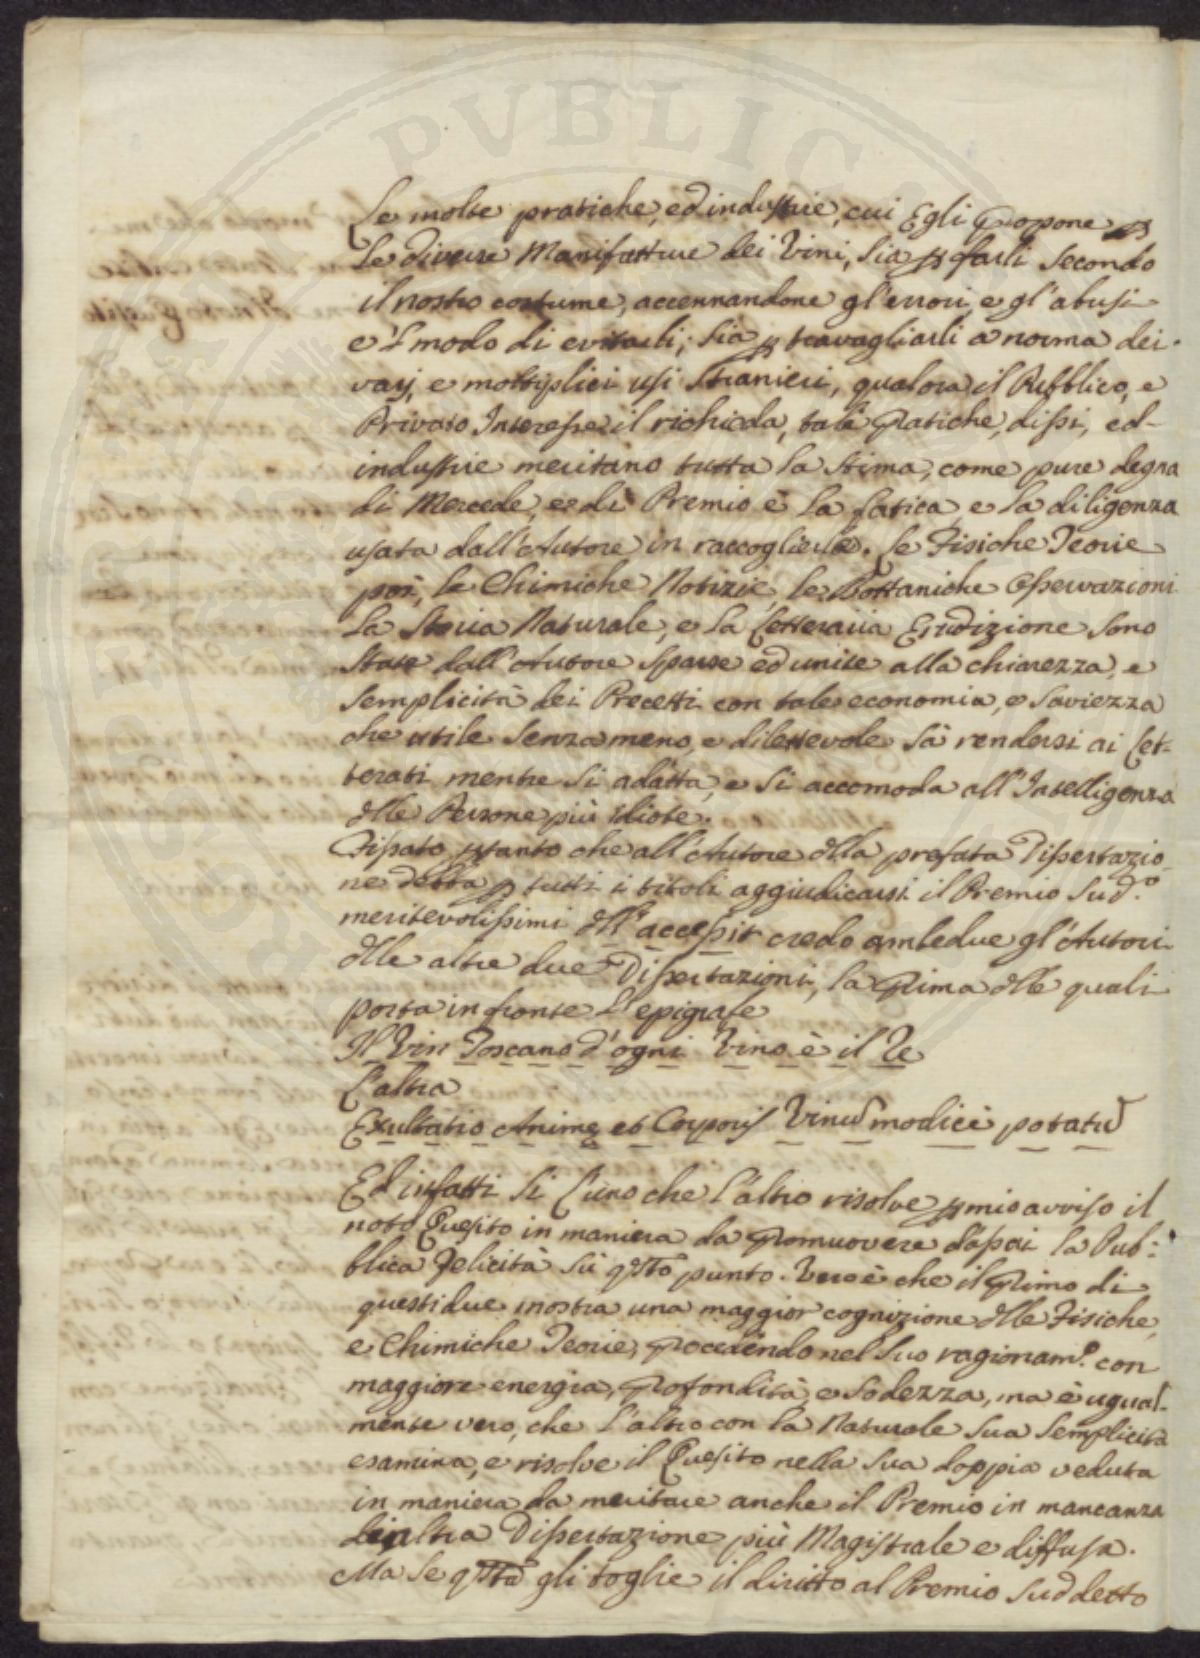 Le molte pratiche, ed industrie, cui Egli Propone p
le diverse Manifatture dei Vini, sia p farli secondo
il nostro costume, accennandone gl'errori, e gl'abusi
e 'l modo di evitarli; sia p travagliarli a norma dei
varj, e moltiplici usi stranieri, qualora il Pubblico, e
Privato Interesse il richieda, tali Pratiche, dissi, ed-
industrie meritano tutta la stima, come pure degna
di Mercede, e di Premio è la fatica, e la diligenza
usata dall'Autore in raccoglierle. Le Fisiche Teorie
poi, le Chimiche Notizie, le Bottaniche Osservazioni
la Storia Naturale, e la Letteraria Erudizione sono
state dall'Autore sparse ed unite alla chiarezza, e
semplicità dei Precetti con tale economia, e saviezza
che utile senza meno, e dilettevole sà rendersi ai Let-
terati mentre si adatta, e si accomoda all'Intelligenza
dlle Persone più idiote.
Fissato ptanto che all'Autore dlla prefata Dissertazio
ne debba p tutti i titoli aggiudicarsi il Premio Sud.o
meritevolissimi dll'accessit credo ambedue gl'Autori
dlle altre due Dissertazioni, la Prima dlle quali
porta in fronte l'epigrafe
Il Vin Toscano d'ogni Vino è il Re
L'altra
Exultatio Animę et Corporis Vinu modicè potatu
Ed infatti sì l'uno che l'altro risolve p mio avviso il
noto Quesito in maniera da Promuovere d'assai la Pub:
blica Felicità sù qsto punto. Vero è che il Primo di
questi due mostra una maggior cognizione dlle Fisiche,
e Chimiche Teorie, Procedendo nel suo ragionam.o con
maggiore energia, Profondità, e sodezza, ma è ugual-
mente vero, che l'altro con la Naturale sua semplicità
esamina, e risolve il Quesito nella sua doppia veduta
in maniera da meritare anche il Premio in mancanza
altra Dissertazione più Magistrale e diffusa.
Ma se qsta gli toglie il diritto al Premio suddetto